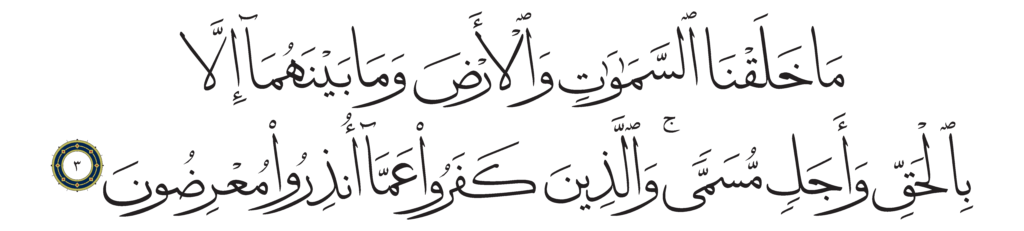 مَا خَلَقْنَا ٱلسَّمَٰوَٰتِ وَٱلْأَرْضَ وَمَا بَيْنَهُمَآ إِلَّا
بِٱلْحَقِّ وَأَجَلٍ مُّسَمًّى ۚ وَٱلَّذِينَ كَفَرُوا۟ عَمَّآ أُنذِرُوا۟ مُعْرِضُونَ ٣